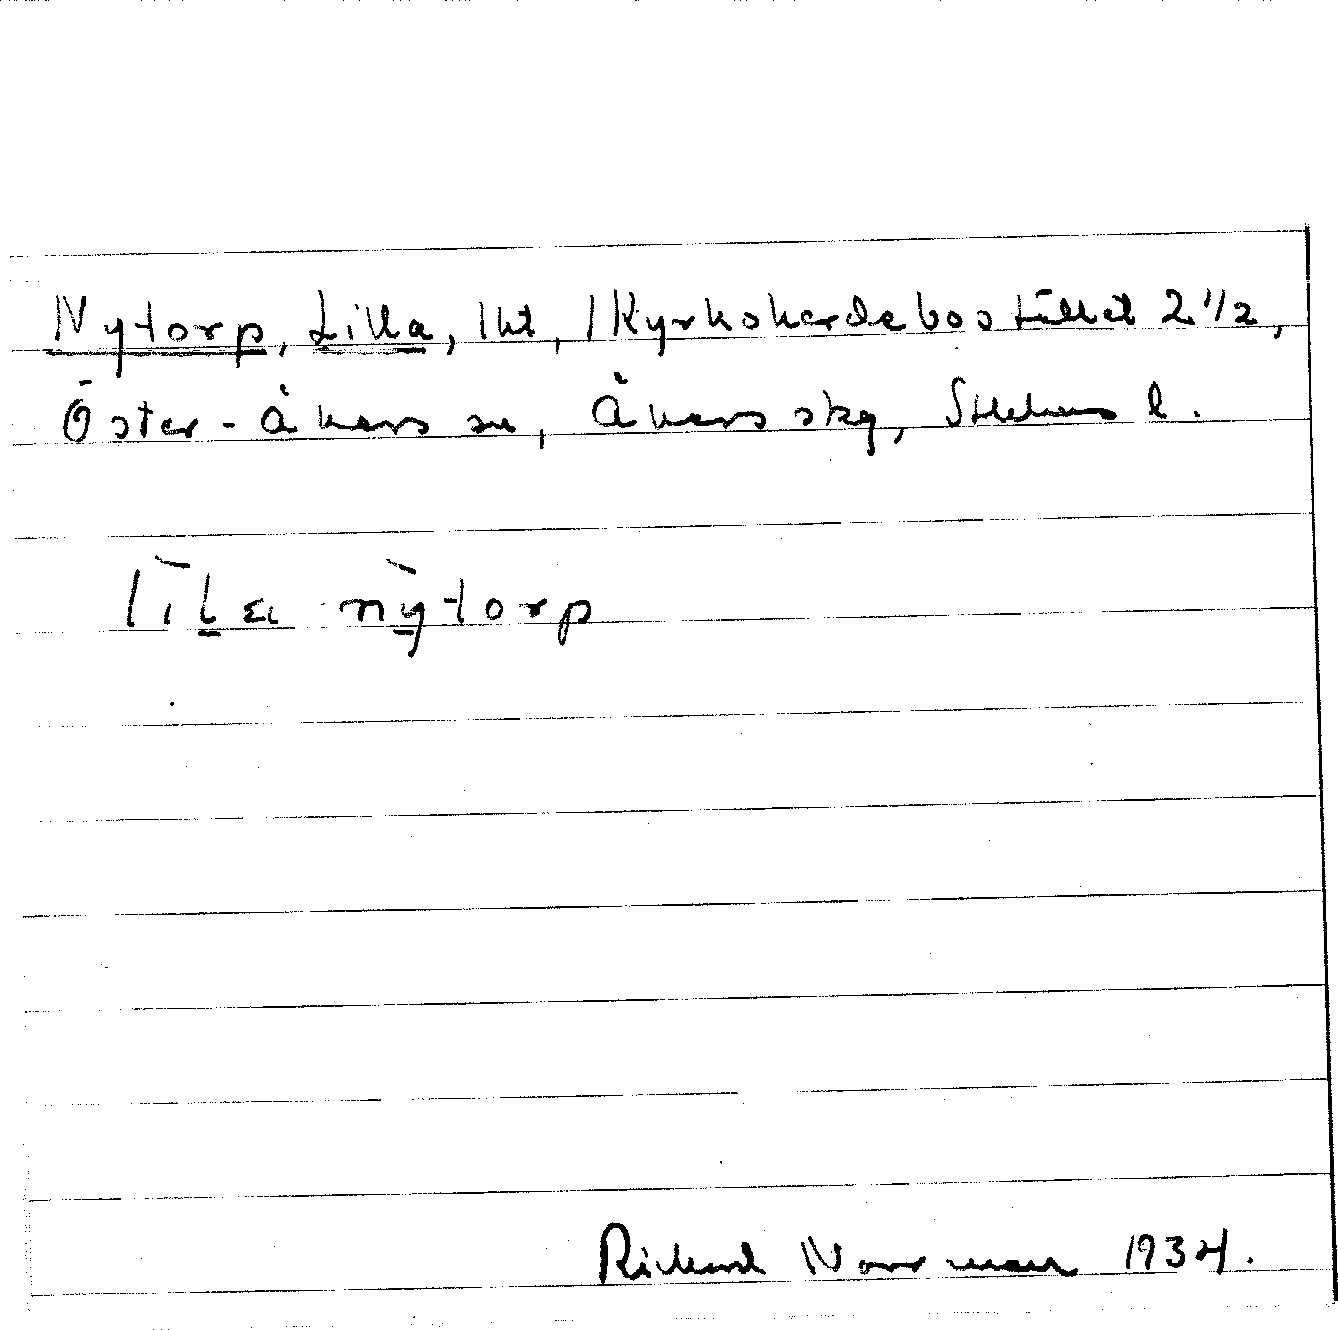 Nytorp, Lilla, lht, /Kyrkoherdebostället 2 1/2,
Öster-Åkers sn, Åkers skg, Sthlms l.
nỳtorp
Rickard Norrman 1934.